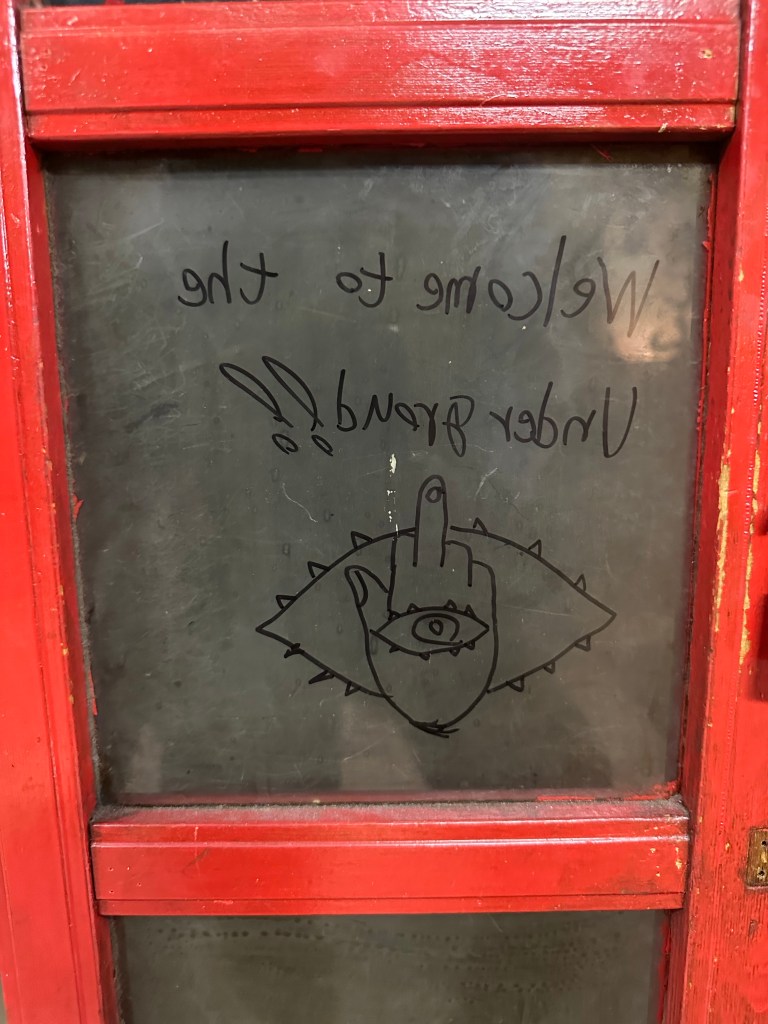 Welcome to the
Undergroud!!